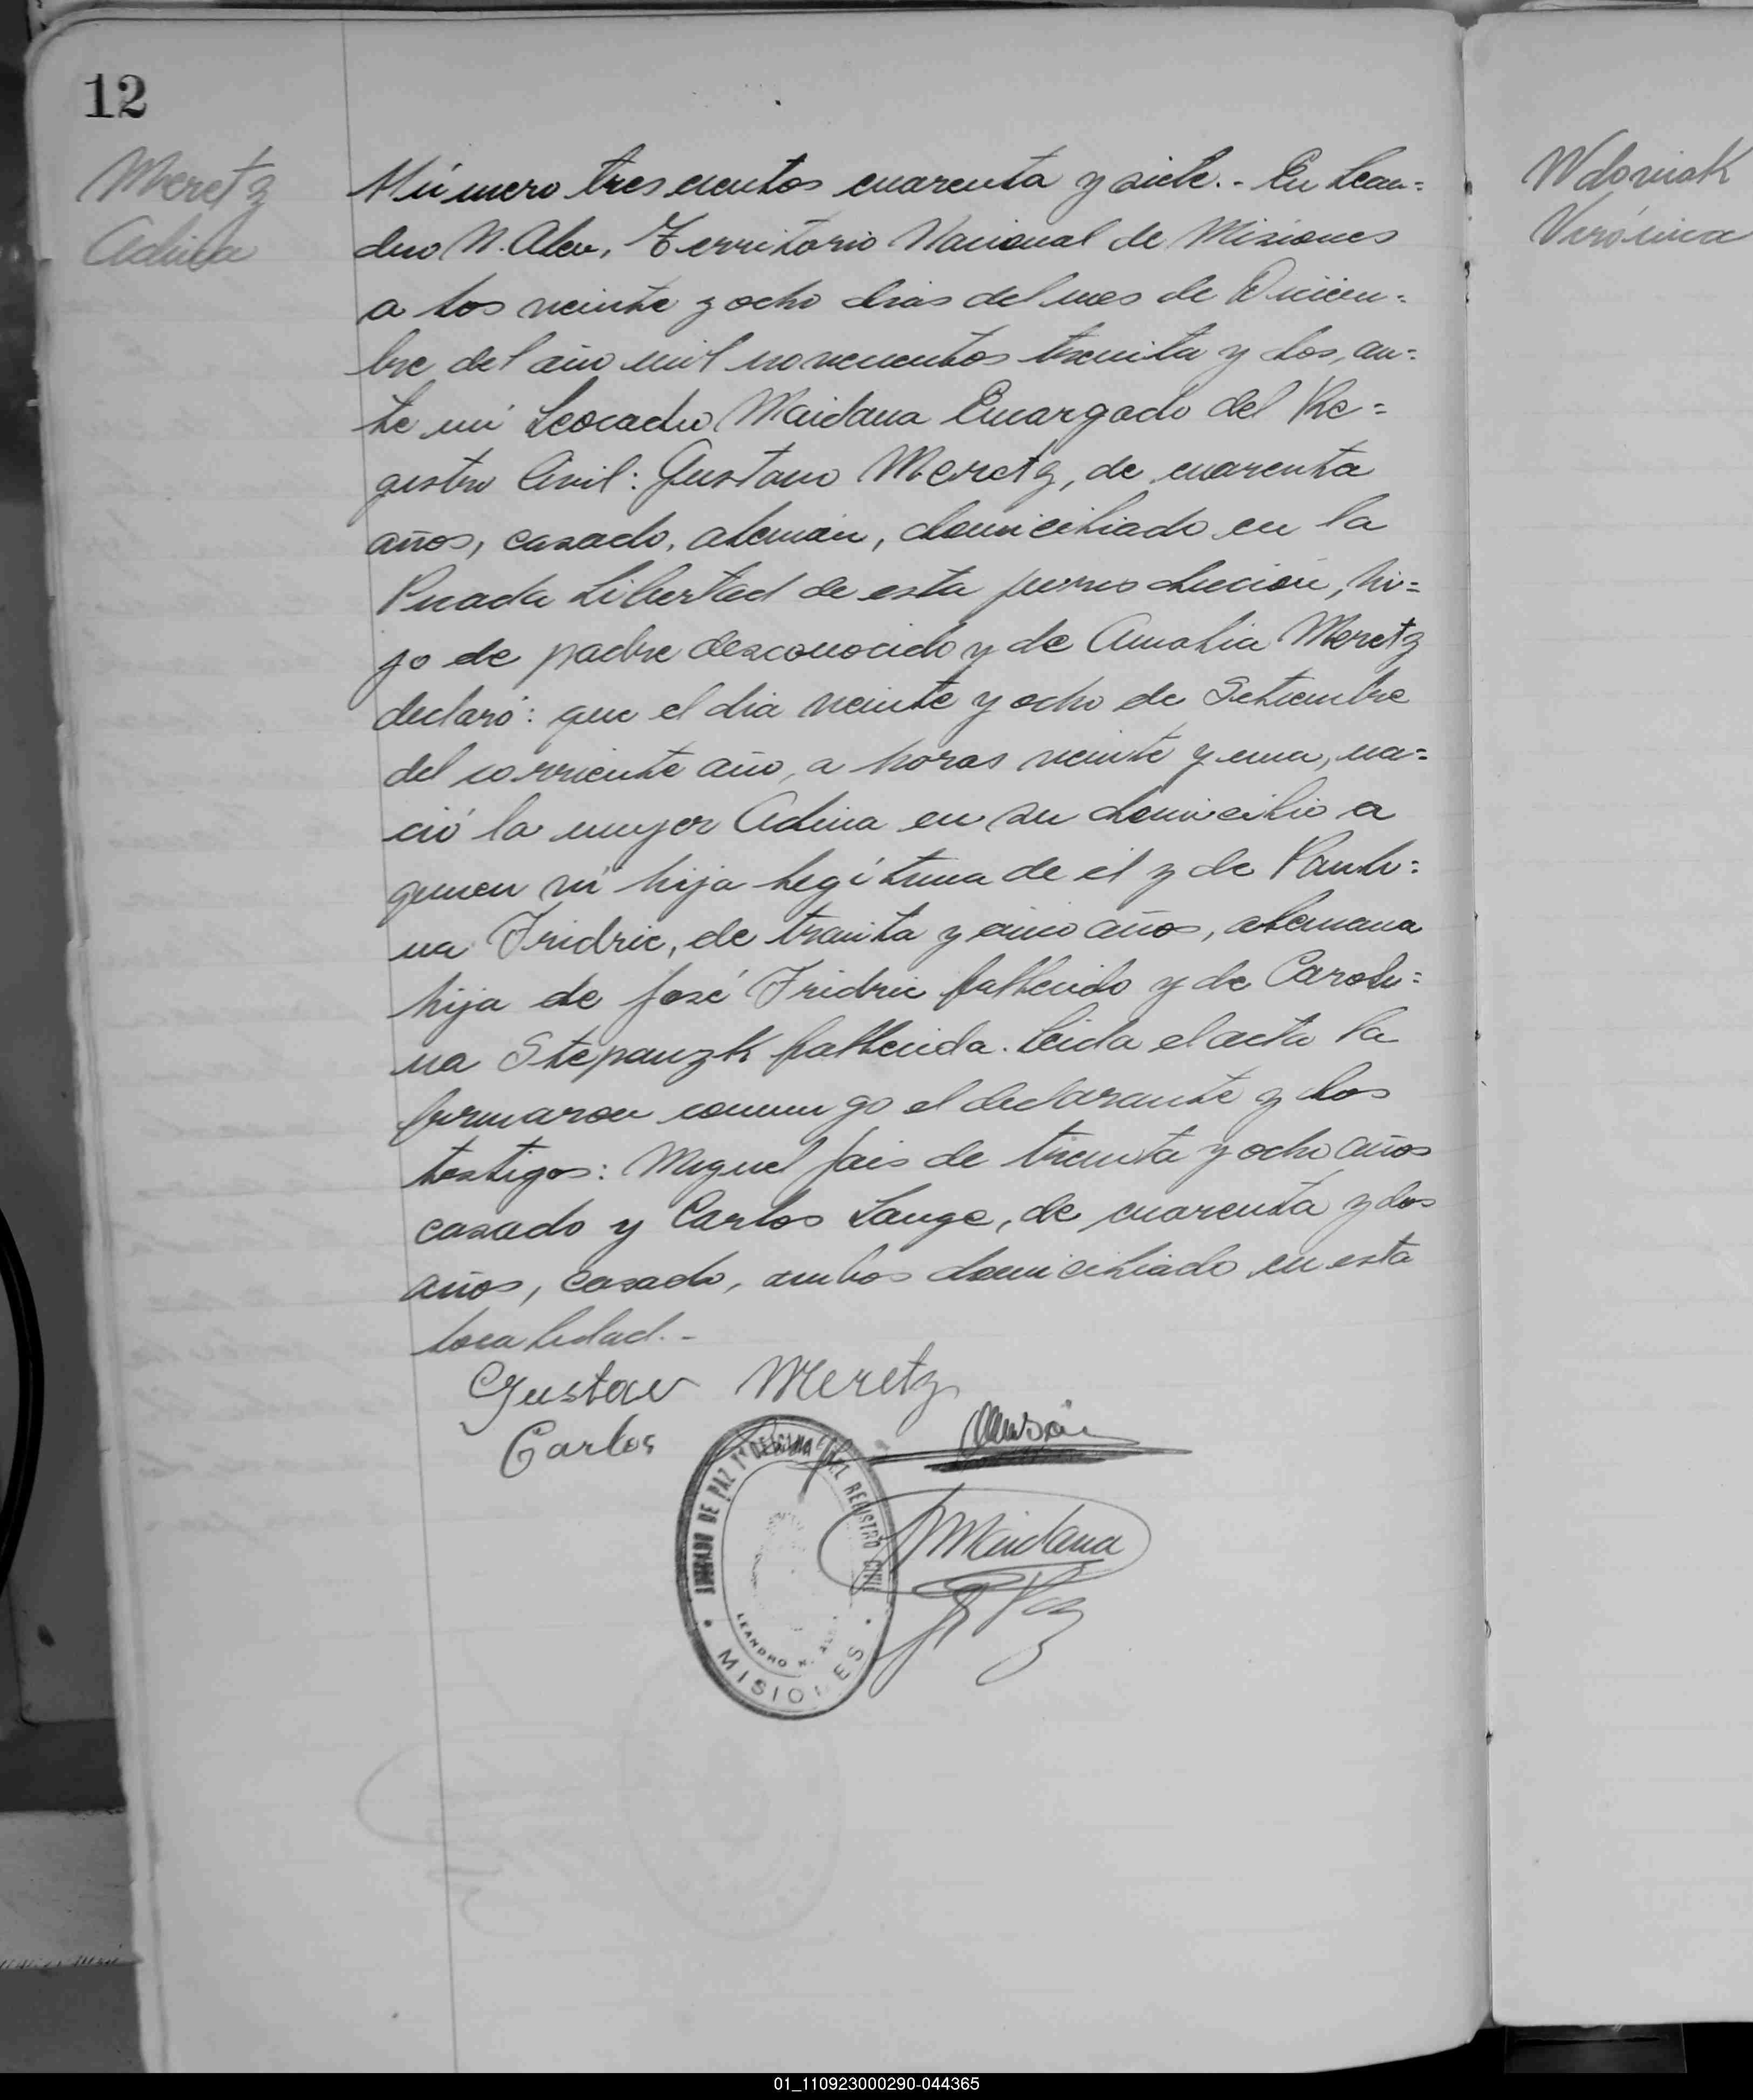 12
Meretz
Adina
Número tres cientos cuarenta y siete.- En Lean=
dro N. Alem, Territorio Nacional de Misiones
a los veinte y ocho dias del mes de Diciem=
bre del año mil novecientos treinta y dos, an=
te mi Leocadio Maidana Encargado del Re=
gistro Civil: Gustavo Meretz, de cuarenta
años, casado, aleman, domiciliado en la
Picada Libertad de esta jurisdiccion, hi=
jo de padre desconocido y de Amalia Meretz
declaró: que el dia veinte y ocho de Setiembre
del corriente año, a horas veinte y una, na=
ció la mujer Adina en su domicilio a
quien vi hija legítima de él y de Pauli=
na Fridric, de treinta y cinco años, alemana
hija de José Fridric fallecido y de Caroli=
na Stepanzk fallecida. Leida el acta la
firmaron conmigo el declarante y los
testigos: Miguel Jais de treinta y ocho años
casado y Carlos Lange, de cuarenta y dos
años, casado, ambos domiciliado en esta
localidad.-
Gustav Meretz
Carlos
JUZGADO DE PAZ Y OFICINA DEL REGISTRO CIVIL
LEANDRO N.
MISIONES
Maidana
Wdoviak
Verónica
01_110923000290-044365